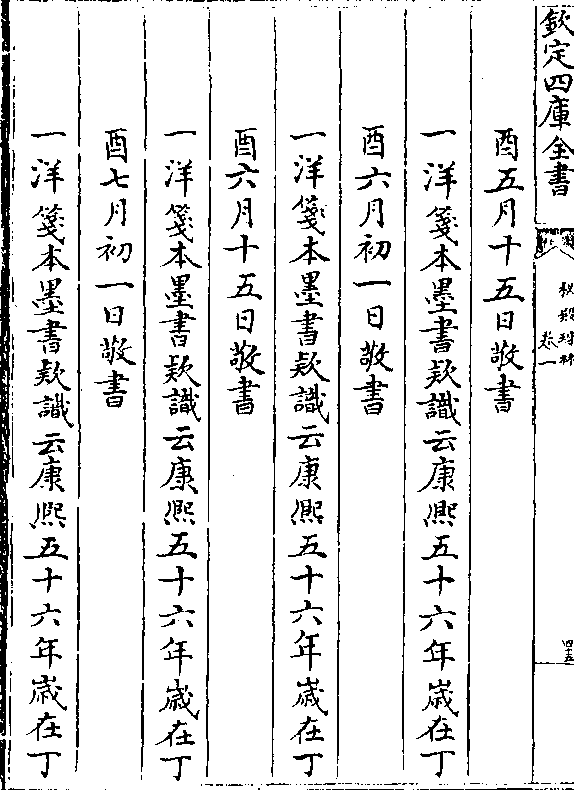 欽定四庫全書
秘殿珠林
卷一
四十五
酉五月十五日敬書
一洋箋本墨書款識云康熙五十六年歲在丁
酉六月初一日敬書
一洋箋本墨書款識云康熙五十六年歲在丁
酉六月十五日敬書
一洋箋本墨書款識云康熙五十六年歲在丁
酉七月初一日敬書
一洋箋本墨書款識云康熙五十六年歲在丁